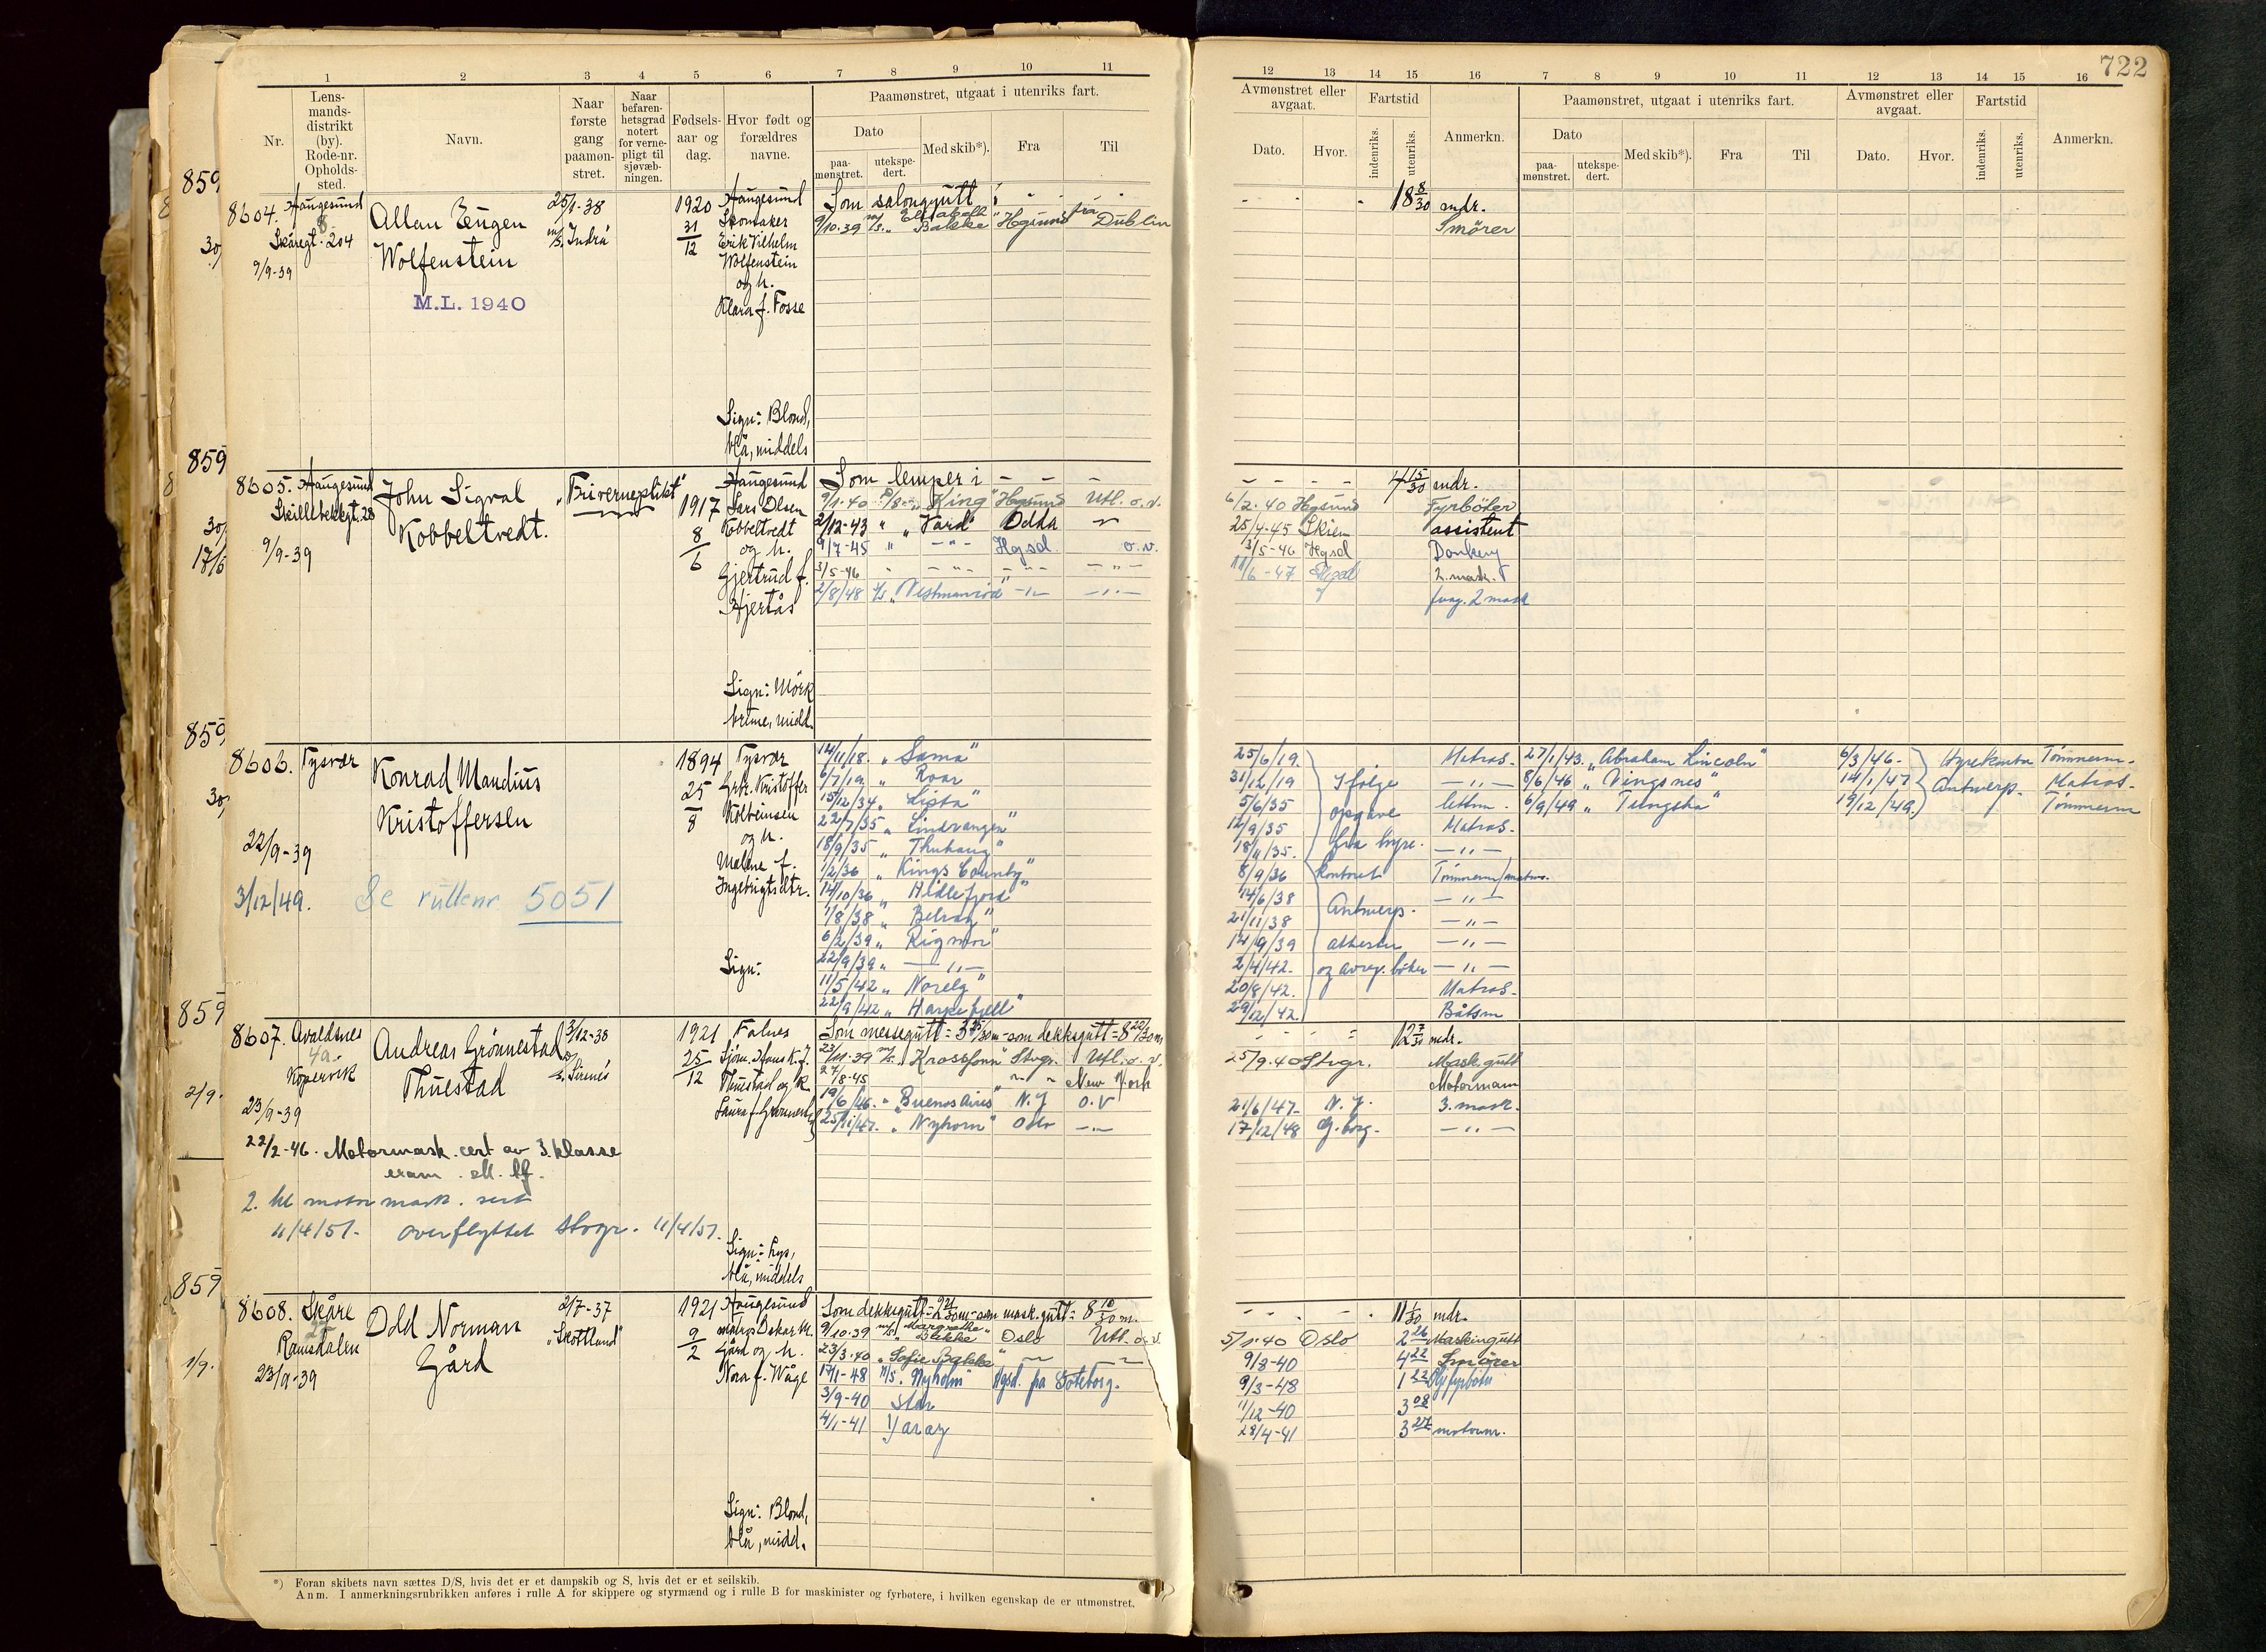 722
1 2 3 4 5 6 7 8 9 10 11
12 13 14 15 16 7 8 9 10 11 12 13 14 15 16
Nr.
Lens-
mands-
distrikt
(by).
Rode-nr.
Opholds-
sted.
Navn.
Naar
første
gang
paamøn-
stret.
Naar
befaren-
hetsgrad
notert
for verne-
pligt til
sjøvæb-
ningen.
Fødsels-
aar og
dag.
Hvor født og
forældres
navne.
Paamønstret, utgaat i utenriks fart.
Dato
paa-
mønstret.
utekspe-
dert.
Med skib*).
Fra
Til
Avmønstret eller
avgaat.
Dato.
Hvor.
Fartstid
indenriks.
utenriks.
Anmerkn.
Paamønstret, utgaat i utenriks fart.
Dato
paa-
mønstret.
utekspe-
dert.
Med skib*).
Fra
Til
Avmønstret eller
avgaat.
Dato.
Hvor.
Fartstid
indenriks.
utenriks.
Anmerkn.
859
8604. Haugesund
8
Skåregt. 204
9/9-39
Allan Eugen
Wolfenstein
M.L. 1940
25/1-38
m/s Indra
1920
31
12
Haugesund
Skomaker
Erik Vilhelm
Wolfenstein
og h.
Klara f. Fosse
Sign: Blond,
blå, middels
Som salongutt i - - -
9/10-39 m/s "Elisabeth Bakke" Hgsund fra Dublin
18 8/30 mdr.
Smører
859
8605. Haugesund
Skillebekkgt. 28
9/9-39
John Sigval
Kobbeltvedt.
"Friverneplikt"
1917
8
6
Haugesund
Lars Olsen
Kobbeltvedt
og h.
Gjertrud f.
Hjertås
Sign: Mörk
brune, midd.
Som lemper i - - - -
9/1-40 D/S "King" Hgsund Utl. o.v.
2/12-43 " "Vard" Odda
9/7-45 " - " - Hgsd. o.v.
3/5-46 - " - - " - - " -
2/8/48
7 15/30 mdr.
6/2-40 Hgsund Fyrböter
25/4-45 Skien assistent
3/5-46 Hgsd Donkey
11/6-47 2. mask.
fung. 2 mask
859
8606. Tysvær
22/9-39
3/12/49. Se rullenr 5051
Konrad Mandius
Kristoffersen
1894
25
8
Tysvær
Grbr. Kristoffer
Kolbeinsen
og h.
Malene f.
Ingebrigtsdtr.
Sign:
14/11/18. " Sama"
6/7/19 " Roar
15/12/34 " Lista"
22/7/35 " Lindvangen"
18/9/35 " Thuhaug"
1/2/36 " Kings County"
14/10/36 " Hidlefjord"
1/8/38 " Belray"
6/2/39 " Rigmor"
22/9/39 " — " —
11/5/42 " Norelg"
22/9/42 " Harpefjell"
25/6/19. Matros.
31/12/19 Ifølge — " —
5/6/35 opgave lettm.
12/9/35 Matros.
18/11/35. fra hyre- — " —
8/9/36 kontoret Tömmerm/matros.
14/6/38 — " —
21/11/38 Antwerp. — " —
14/9/39 attester — " —
2/4/42. og avreg. bøker — " —
20/8/42. Matros.
29/12/42. Båtsm
27/1/43. "Abraham Lincoln" 6/3/46. Hyrekontor Tömmerm.
8/6/46 "Vingsnes" 14/1/47 Antwerp. Matros.
6/9/49 " Tungsha" 19/12/49. Tömmerm
859
8607. Avaldsnes
4a.
Kopervik
23/9-39
Andreas Grönnestad
Thuestad
3/12-38
Sirenes
1921
25
12
Falnes
Sjöm. Hans K. J.
Thuestad og h.
Laura f. Grönnestad
Sign: Lys,
blå, middels
22/2-46. Motormask. cert av 3. klasse
eram. ell. lf.
2. kl motor mask. sert
11/4/51. overflyttet Stvgr. 11/4/51.
Som messegutt = 3 25/30 m - som dekksgutt = 8 22/30 m
23/11-39 m/s "Krossfonn" Stvgr. Utl. o. v.
27/8-45 New York
19/6/46. " "Buenos Aires" N.Y O.V
25/11/47. " "Nyhorn" Oslo —"—
12 7/30 mdr.
25/9-40 Stvgr. Mask.gutt
Motormann
21/6/47- N. Y. 3. mask.
17/12/48 G. borg. — " —
859
8608. Skåre
25
Ramsdalen
23/9-39
Odd Norman
Gård
2/7-37
"Skottland"
1921
9
2
Haugesund
Oskar M.
Gård og h.
Nora f. Wåge
Sign: Blond,
blå, midd.
Som dekksgutt = som mask.gutt = 8 10/30 m.
9/10-39 m/s "Margrethe Bakke" Oslo Utl. o.v.
23/3-40 "Sofie Bakke" — —
17/1-48 M/S. "Nyholm" Hgsd. fra Göteborg.
3/9-40 Star
4/1-41 Yaray
11 1/30 mdr.
5/1-40 Oslo 2 26 Maskingutt
9/8-40 4 22 Smører
9/3-48 1 22
11/12-40 3 08
28/4-41 3 27 motorm.
*) Foran skibets navn sættes D/S, hvis det er et dampskib og S, hvis det er et seilskib.
Anm. I anmerkningsrubrikken anføres i rulle A for skippere og styrmænd og i rulle B for maskinister og fyrbøtere, i hvilken egenskap de er utmønstret.